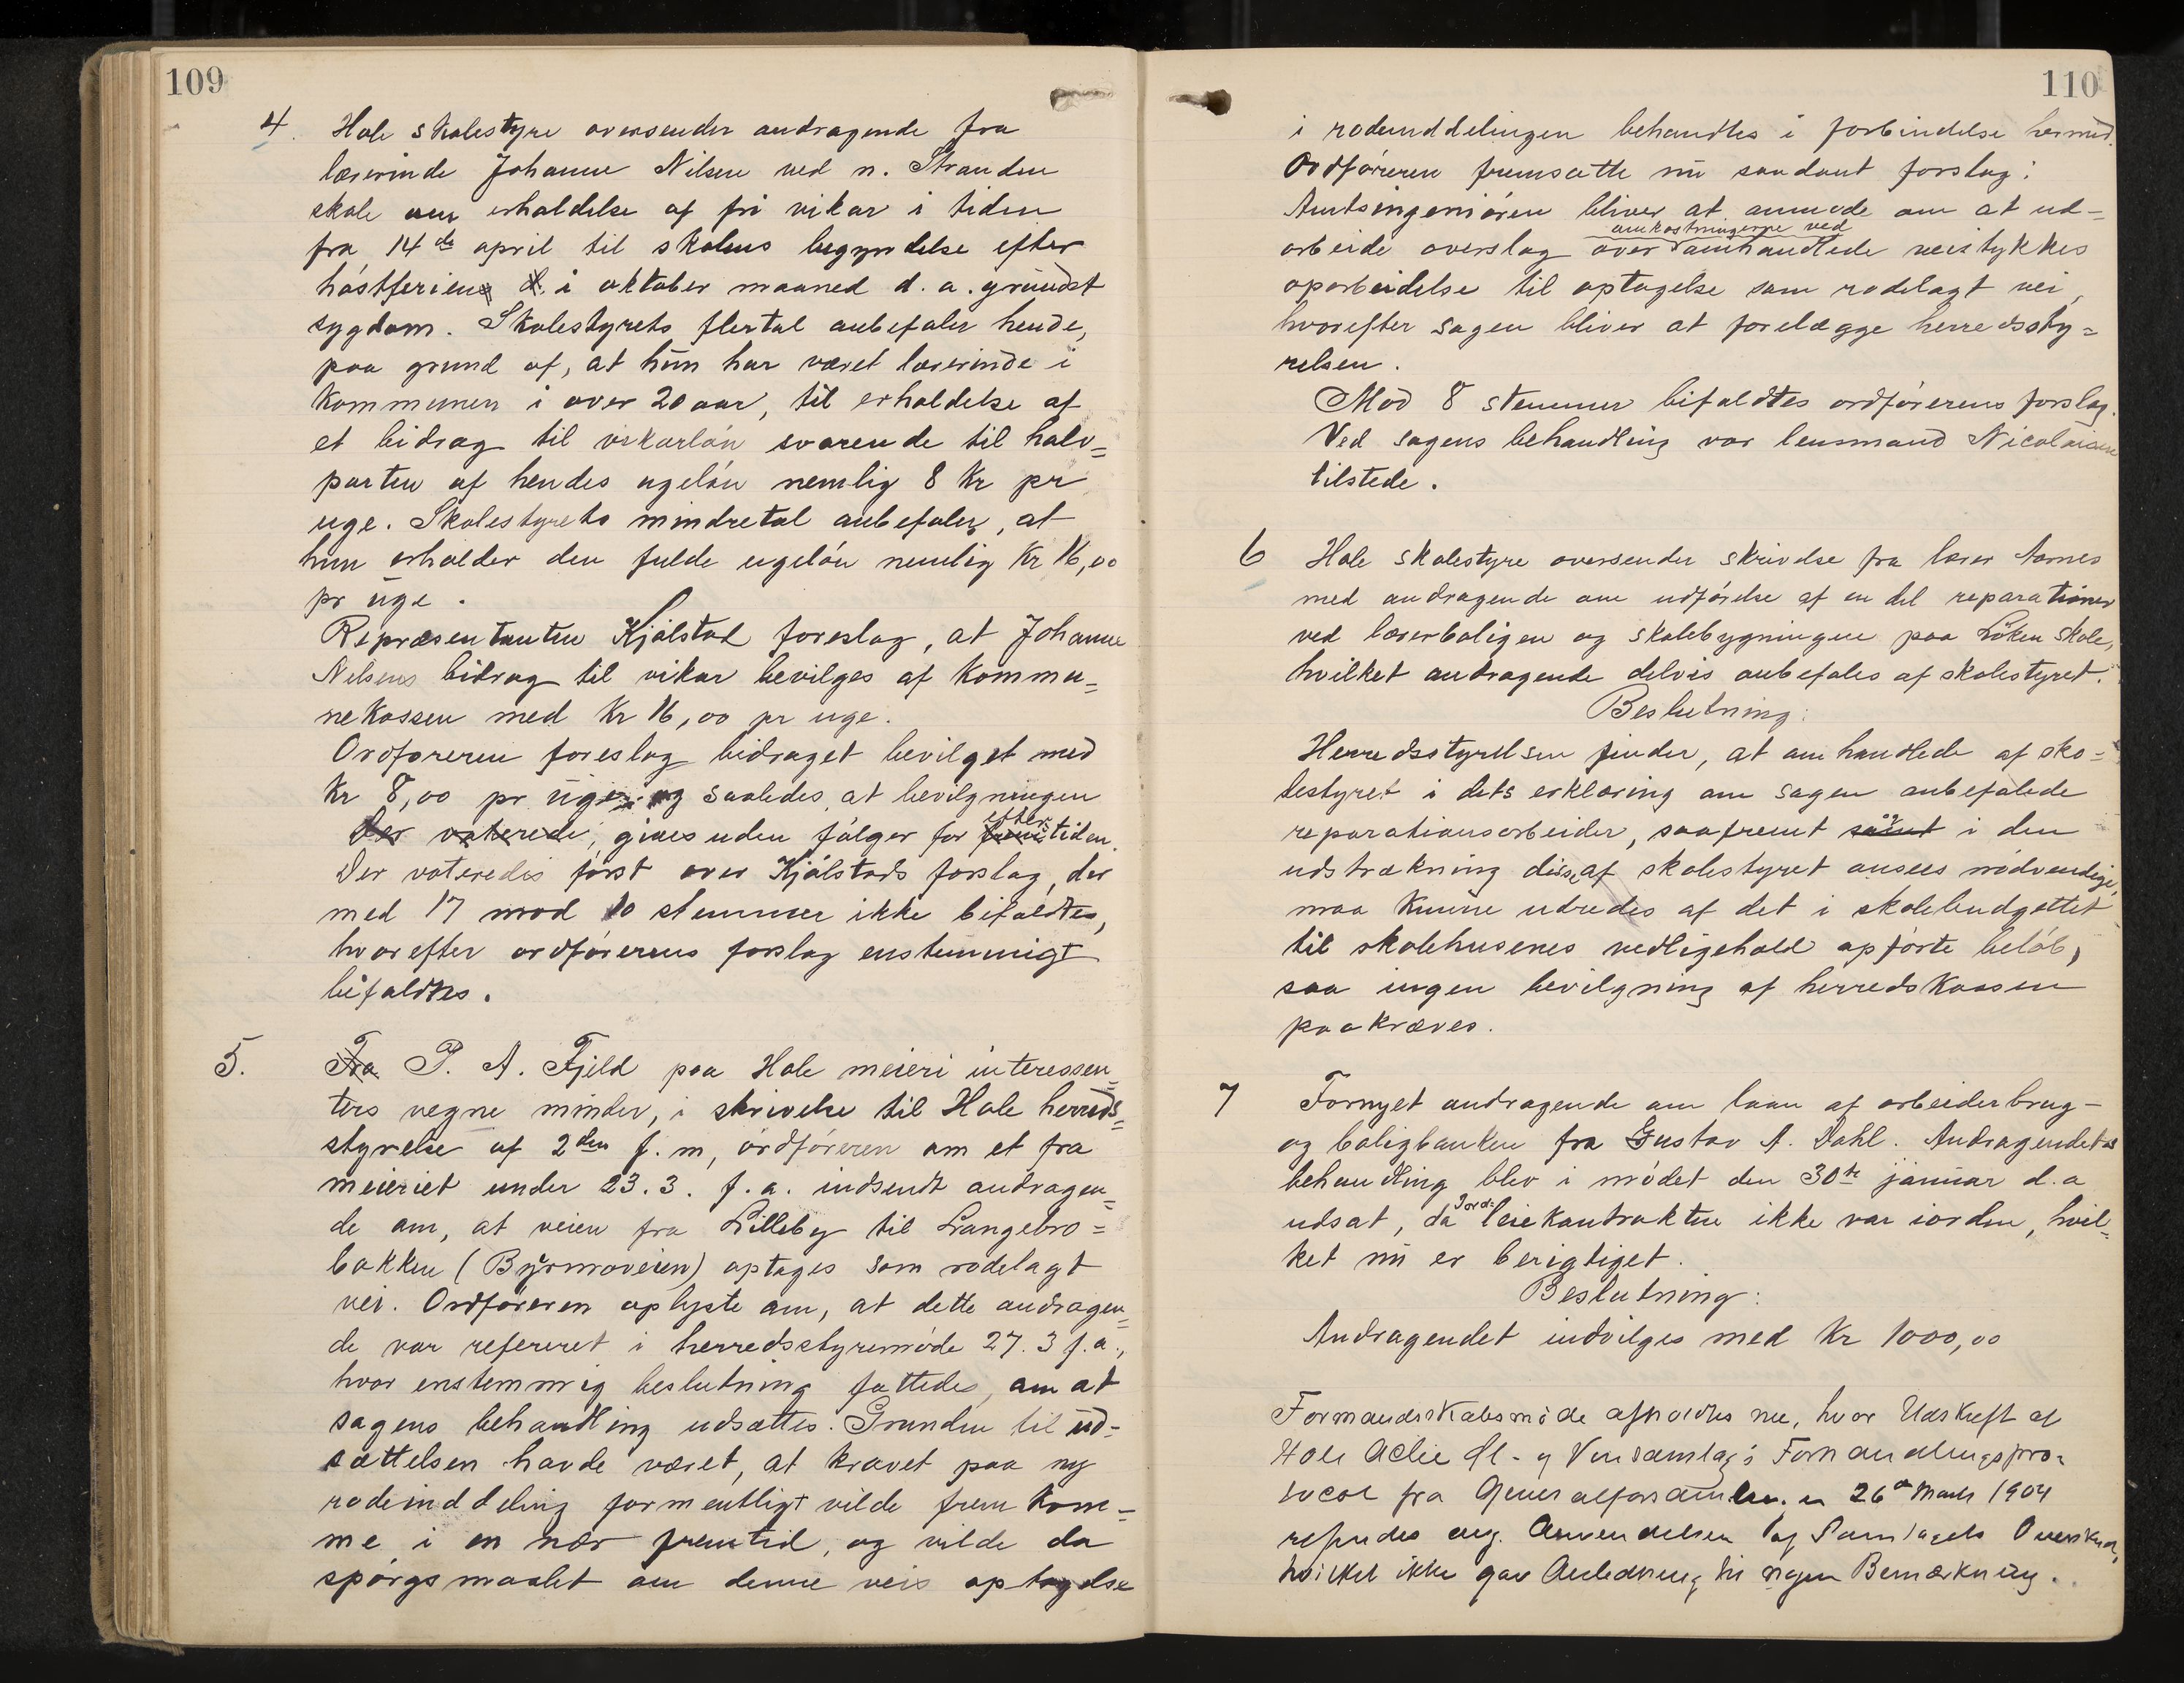 109
4. Hole skolestyre oversender andragende fra
lærerinde Johanne Nilsen ved n. Stranden
skole om erholdelse af fri vikar i tiden
fra 14de april til skolens begyndelse efter
høstferien i oktober maaned d. a. grundet
sygdom. Skolestyrets flertal anbefaler hende,
paa grund af, at hun har været lærerinde i
kommunen i over 20 aar, til erholdelse af
et bidrag til vikarløn svarende til halv=
parten af hendes ugeløn nemlig 8 Kr pr
uge. Skolestyrets mindretal anbefaler, at
hun erholder den fulde ugeløn nemlig Kr 16,00
pr uge.
Repræsentanten Kjølstad foreslog, at Johanne
Nilsens bidrag til vikar bevilges af kommu=
nekassen med Kr 16,00 pr uge.
Ordføreren foreslog bidraget bevilget med
Kr 8,00 pr uge og saaledes at bevilgningen
Der voterede, gives uden følger for efter
tiden.
Der voteredes først over Kjølstads forslag, der
med 17 mod 10 stemmer ikke bifaldtes,
hvorefter ordførerens forslag enstemmigt
bifaldtes.
5. Fra P. A. Fjeld paa Hole meieri interessen=
ters vegne minder, i skrivelse til Hole herreds=
styrelse af 2den f. m, ordføreren om et fra
meieriet under 23. 3. f. a. indsendt andragen=
de om, at veien fra Lilleby til Langebro=
bakken (Byrmoveien) optages som rodelagt
vei. Ordføreren oplyste om, at dette andragen=
de var refereret i herredsstyremøde 27. 3 f. a.,
hvor enstemmig beslutning fattedes, om at
sagens behandling udsættes. Grunden til ud-
sættelsen havde været, at kravet paa ny
rodeinddeling formentligt vilde frem kom=
me i en nær fremtid, og vilde da
spørgsmaalet om denne veis optagelse
110
i rodeinddelingen behandles i forbindelse hermed.
Ordføreren fremsatte nu saadant forslag:
Amtsingeniøren bliver at anmode om at ud-
omkostningerne ved
arbeide overslag over omhandlede veistykkes
oparbeidelse til optagelse som rodelagt vei,
hvorefter sagen bliver at forelægge herredssty=
relsen.
Mod 8 stemmer bifaldtes ordførerens forslag.
Ved sagens behandling var lensmand Nicolaisen
tilstede.
6 Hole skolestyre oversender skrivelse fra lærer Aarnes
med andragende om udførelse af en del reparationer
ved lærerboligen og skolebygningen paa Løken skole,
hvilket andragende delvis anbefales af skolestyret.
Beslutning:
Herredsstyrelsen finder, at omhandlede af sko=
lestyret i dets erklæring om sagen anbefalede
reparationsarbeider, saafremt samt i den
udstrækning disse af skolestyret ansees nødvendige,
maa kunne udredes af det i skolebudgettet
til skolehusenes vedligehold opførte beløb,
saa ingen bevilgning af herredskassen
paakræves.
7 Fornyet andragende om laan af arbeiderbrug-
og boligbanken fra Gustav A. Dahl. Andragendets
behandling blev i mødet den 30te januar d. a
Jord-
udsat, da leiekontrakten ikke var iorden, hvil=
ket nu er berigtiget.
Beslutning:
Andragendet indvilges med Kr 1000,00
Formandsskabsmøde afholdtes nu, hvor Udskrift af
Hole Actie Øl- og Vinsamlags Forhandlingspro-
tocol fra Generalforsamlin. 26de Marts 1904
refredes ang. Anvendelsen af Samlagets Overskud,
hvilket ikke gav Anledning til nogen Bemærkning.